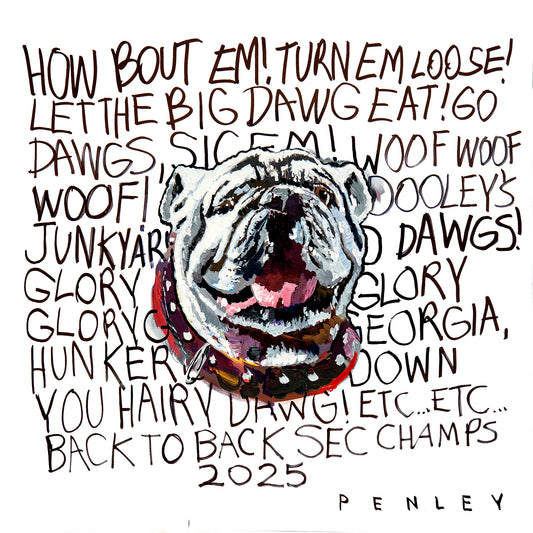 HOW BOUT EM! TURN EM LOOSE!
LET THE BIG DAWG EAT! GO
DAWGS, SIC EM! WOOF WOOF
WOOF! DOOLEY'S
JUNKYAR D DAWGS!
GLORY GLORY
GLORY G EORGIA,
HUNKER DOWN
YOU HAIRY DAWG! ETC...ETC...
BACK TO BACK SEC CHAMPS
2025
PENLEY